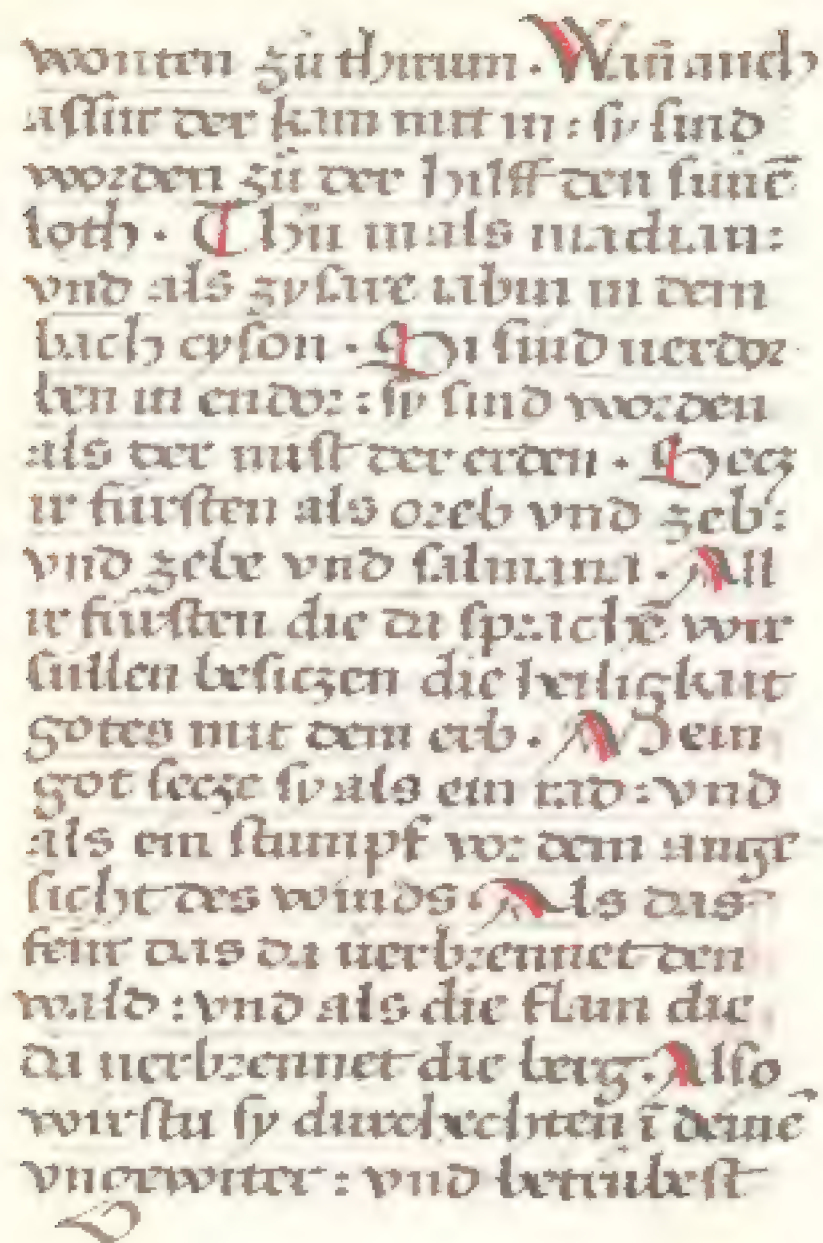 wonten zu thirum · Wan̄ auch
assur der kam mit in : sy sind
worden zu der hilff den sunē
loth · Thu in als madian :
vnd als zysare iabin in dem
bach cyson · Si sind uerdor
ben in endor : sy sind worden
als der mist der erden · Secz
ir fürsten als oreb vnd zeb :
vnd zebe vnd salmana · All
ir fürsten die da sprachē wir
süllen besiczen die heiligkait
gotes mit dem erb · Mein
got secze sy als ein rad : vnd
als ein stumpf vor dem ange
sicht des winds · Als das
feur das da uerbrennet den
wald : vnd als die flam die
da uerbrennet die berg · Also
wirstu sy durchechten ī deinē
vngewitter : vnd betrübest